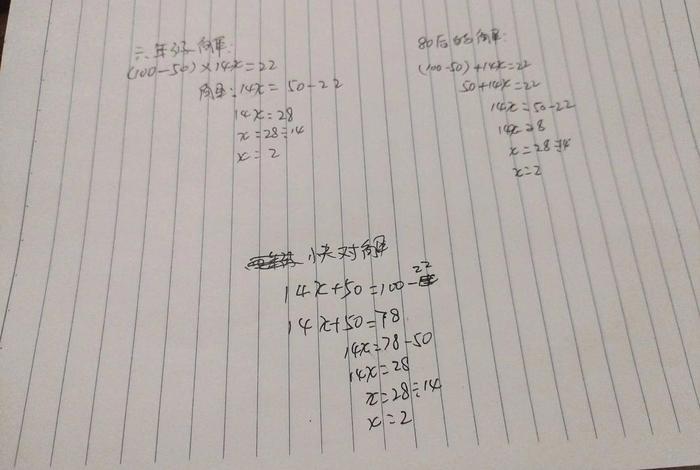 六年级解:
(100-50)×14x=22
解:14x=50-22
14x=28
x=28÷14
x=2
80后的解:
(100-50)+14x=22
50+14x=22
14x=50-22
14x=28
x=28÷14
x=2
小夫对解
14x+50=100-22
14x+50=78
14x=78-50
14x=28
x=28÷14
x=2